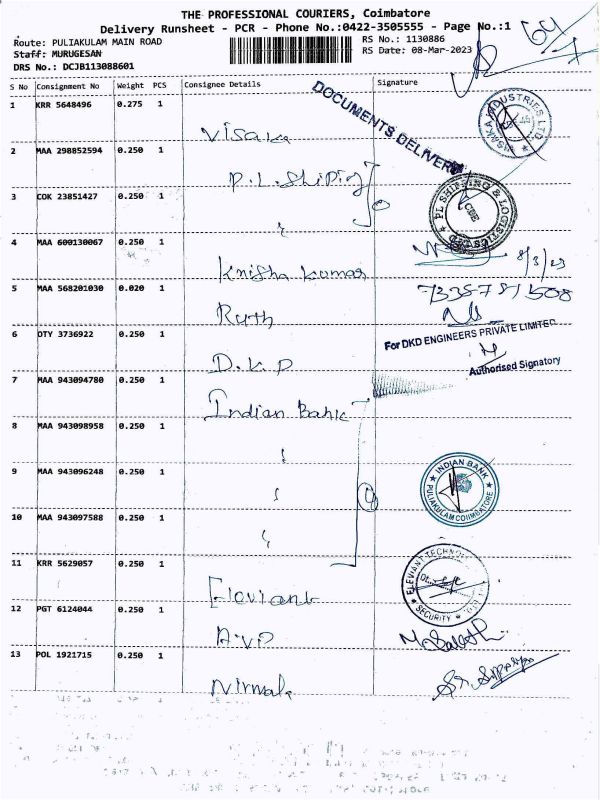 THE PROFESSIONAL COURIERS, Coimbatore
Delivery Runsheet - PCR - Phone No.:0422-3505555 - Page No.:1
Route: PULIAKULAM MAIN ROAD RS No.: 1130886
Staff: MURUGESAN RS Date: 08-Mar-2023
DRS No.: DCJB113088601
S No Consignment No Weight PCS Consignee Details Signature
1 KRR 5648496 0.275 1
Visaka
VISAKA INDUSTRIES LTD
DOCUMENTS DELIVERY
2 MAA 298852594 0.250 1
P.L. Shiping
3 COK 23851427 0.250 1
PL SHIPPING & LOGISTICS
CBE
4 MAA 600130067 0.250 1
8/3/23
Krisha Kumar
5 MAA 568201030 0.020 1
Ruth
6 OTY 3736922 0.250 1
For DKD ENGINEERS PRIVATE LIMITED
D.K.D
Authorised Signatory
7 MAA 943094780 0.250 1
Indian Bank
8 MAA 943098958 0.250 1
9 MAA 943096248 0.250 1
4
INDIAN BANK
PULIAKULAM COIMBATORE
10 MAA 943097588 0.250 1
11 KRR 5629057 0.250 1
Eleviant
ELEVIANT TECHNOLOGIES
SECURITY
12 PGT 6124044 0.250 1
A.V.P
13 POL 1921715 0.250 1
Nirmala